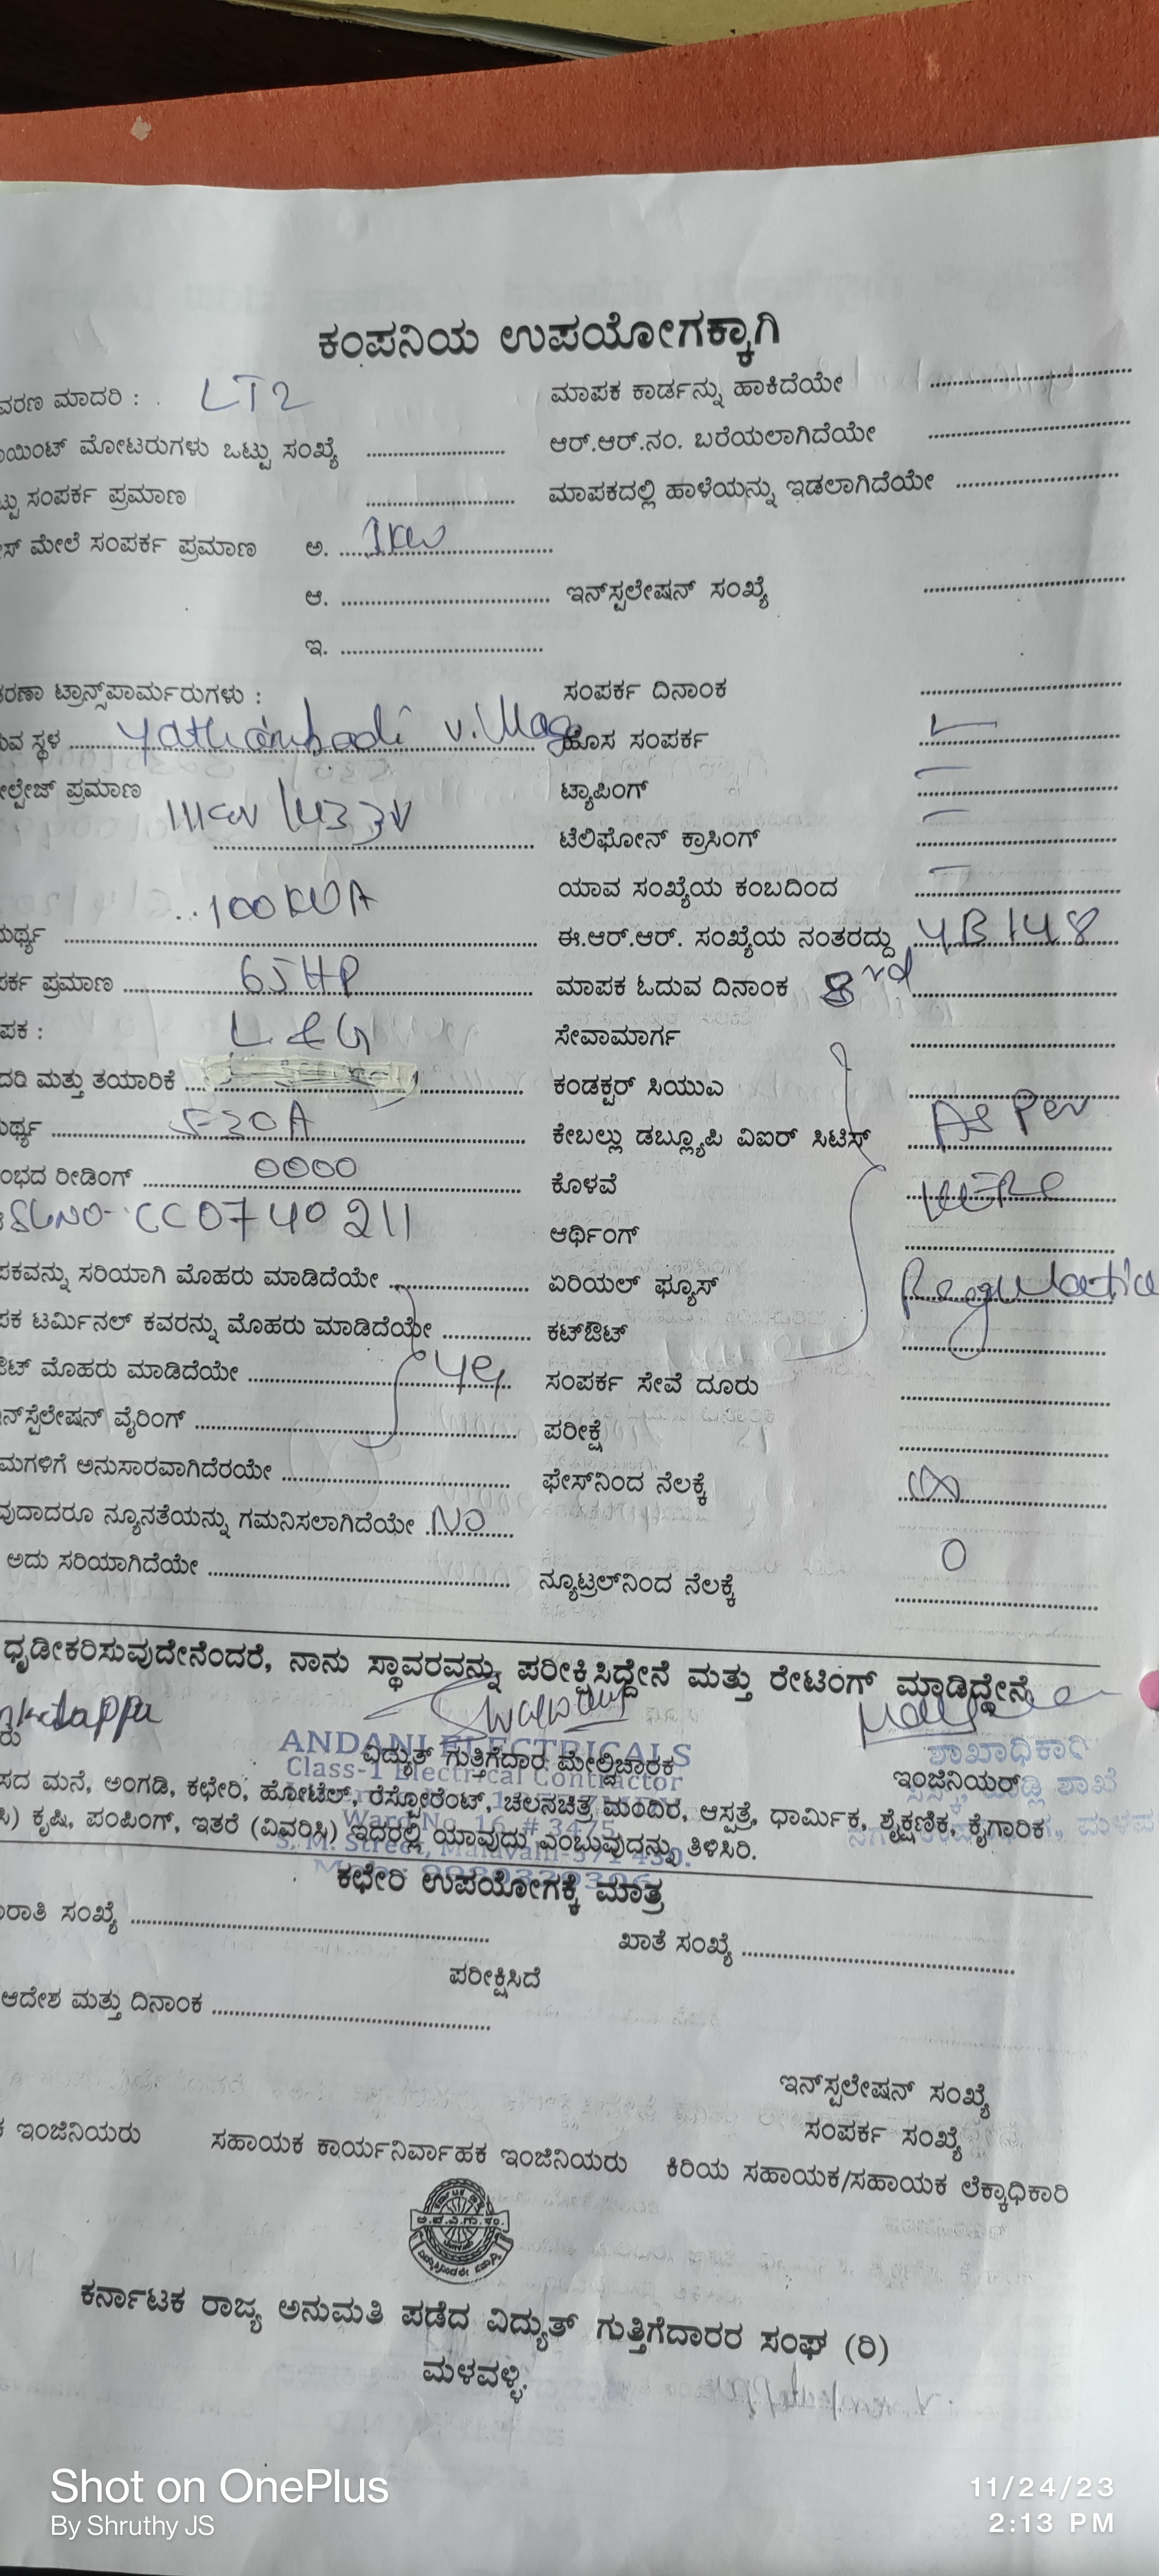 ಕಂಪನಿಯ ಉಪಯೋಗಕ್ಕಾಗಿ
ವರಣ ಮಾದರಿ : LT2 ಮಾಪಕ ಕಾರ್ಡನ್ನು ಹಾಕಿದೆಯೇ
ಯಿಂಟ್ ಮೋಟರುಗಳು ಒಟ್ಟು ಸಂಖ್ಯೆ ಆರ್.ಆರ್.ನಂ. ಬರೆಯಲಾಗಿದೆಯೇ
ಟ್ಟು ಸಂಪರ್ಕ ಪ್ರಮಾಣ ಮಾಪಕದಲ್ಲಿ ಹಾಳೆಯನ್ನು ಇಡಲಾಗಿದೆಯೇ
ಸ್ ಮೇಲೆ ಸಂಪರ್ಕ ಪ್ರಮಾಣ ಅ. 1kw
ಆ. ಇನ್‌ಸ್ಪಲೇಷನ್ ಸಂಖ್ಯೆ
ಇ.
ತರಣಾ ಟ್ರಾನ್ಸ್‌ಪಾರ್ಮರುಗಳು : ಸಂಪರ್ಕ ದಿನಾಂಕ
ುವ ಸ್ಥಳ Yathambadi village ಹೊಸ ಸಂಪರ್ಕ
ೋಲ್ಟೇಜ್ ಪ್ರಮಾಣ 11KV/433V ಟ್ಯಾಪಿಂಗ್
ಟೆಲಿಫೋನ್ ಕ್ರಾಸಿಂಗ್
ಯಾವ ಸಂಖ್ಯೆಯ ಕಂಬದಿಂದ
ಮರ್ಥ್ಯ 100KVA ಈ.ಆರ್.ಆರ್. ಸಂಖ್ಯೆಯ ನಂತರದ್ದು YB148
ಪರ್ಕ ಪ್ರಮಾಣ 65HP ಮಾಪಕ ಓದುವ ದಿನಾಂಕ 3rd
ಪಕ : L&G ಸೇವಾಮಾರ್ಗ
ದರಿ ಮತ್ತು ತಯಾರಿಕೆ ಕಂಡಕ್ಟರ್ ಸಿಯುಎ
ರ್ಥ್ಯ 5-30A ಕೇಬಲ್ಲು ಡಬ್ಲ್ಯೂಪಿ ವಿಐರ್ ಸಿಟಿಸ್ As Per
ಂಭದ ರೀಡಿಂಗ್ 0000 ಕೊಳವೆ
SLNO- CC0740211 ಆರ್ಥಿಂಗ್
ಪಕವನ್ನು ಸರಿಯಾಗಿ ಮೊಹರು ಮಾಡಿದೆಯೇ ಏರಿಯಲ್ ಫ್ಯೂಸ್ Regulation
ಪಕ ಟರ್ಮಿನಲ್ ಕವರನ್ನು ಮೊಹರು ಮಾಡಿದೆಯೇ ಕಟ್‌ಔಟ್
ಔಟ್ ಮೊಹರು ಮಾಡಿದೆಯೇ Yes ಸಂಪರ್ಕ ಸೇವೆ ದೂರು
ನ್‌ಸ್ಟೆಲೇಷನ್ ವೈರಿಂಗ್ ಪರೀಕ್ಷೆ
ಮಗಳಿಗೆ ಅನುಸಾರವಾಗಿದೆರಯೇ ಫೇಸ್‌ನಿಂದ ನೆಲಕ್ಕೆ ∞
ವುದಾದರೂ ನ್ಯೂನತೆಯನ್ನು ಗಮನಿಸಲಾಗಿದೆಯೇ NO
ಅದು ಸರಿಯಾಗಿದೆಯೇ ನ್ಯೂಟ್ರಲ್‌ನಿಂದ ನೆಲಕ್ಕೆ 0
ಧೃಡೀಕರಿಸುವುದೇನೆಂದರೆ, ನಾನು ಸ್ಥಾವರವನ್ನು ಪರೀಕ್ಷಿಸಿದ್ದೇನೆ ಮತ್ತು ರೇಟಿಂಗ್ ಮಾಡಿದ್ದೇನೆ
ANDANI ELECTRICALS
ವಿದ್ಯುತ್ ಗುತ್ತಿಗೆದಾರ ಮೇಲ್ವಿಚಾರಕ ಶಾಖಾಧಿಕಾರಿ
Class-1 Electrical Contractor ಇಂಜಿನಿಯರ್
ಸದ ಮನೆ, ಅಂಗಡಿ, ಕಛೇರಿ, ಹೋಟೆಲ್, ರೆಸ್ಟೋರೆಂಟ್, ಚಲನಚಿತ್ರ ಮಂದಿರ, ಆಸ್ಪತ್ರೆ, ಧಾರ್ಮಿಕ, ಶೈಕ್ಷಣಿಕ, ಕೈಗಾರಿಕ
Ward No. 16, # 3475
ಸಿ) ಕೃಷಿ, ಪಂಪಿಂಗ್, ಇತರೆ (ವಿವರಿಸಿ) ಇದರಲ್ಲಿ ಯಾವುದು ಎಂಬುವುದನ್ನು ತಿಳಿಸಿರಿ.
S. M. Street, Malavalli-571 430.
ಕಛೇರಿ ಉಪಯೋಗಕ್ಕೆ ಮಾತ್ರ
ರಾತಿ ಸಂಖ್ಯೆ ಖಾತೆ ಸಂಖ್ಯೆ
ಪರೀಕ್ಷಿಸಿದೆ
ಆದೇಶ ಮತ್ತು ದಿನಾಂಕ
ಇನ್‌ಸ್ಪಲೇಷನ್ ಸಂಖ್ಯೆ
ಸಂಪರ್ಕ ಸಂಖ್ಯೆ
ಕ ಇಂಜಿನಿಯರು ಸಹಾಯಕ ಕಾರ್ಯನಿರ್ವಾಹಕ ಇಂಜಿನಿಯರು ಕಿರಿಯ ಸಹಾಯಕ/ಸಹಾಯಕ ಲೆಕ್ಕಾಧಿಕಾರಿ
ಕರ್ನಾಟಕ ರಾಜ್ಯ ಅನುಮತಿ ಪಡೆದ ವಿದ್ಯುತ್ ಗುತ್ತಿಗೆದಾರರ ಸಂಘ (ರಿ)
ಮಳವಳ್ಳಿ.
Shot on OnePlus
By Shruthy JS
11/24/23
2:13 PM